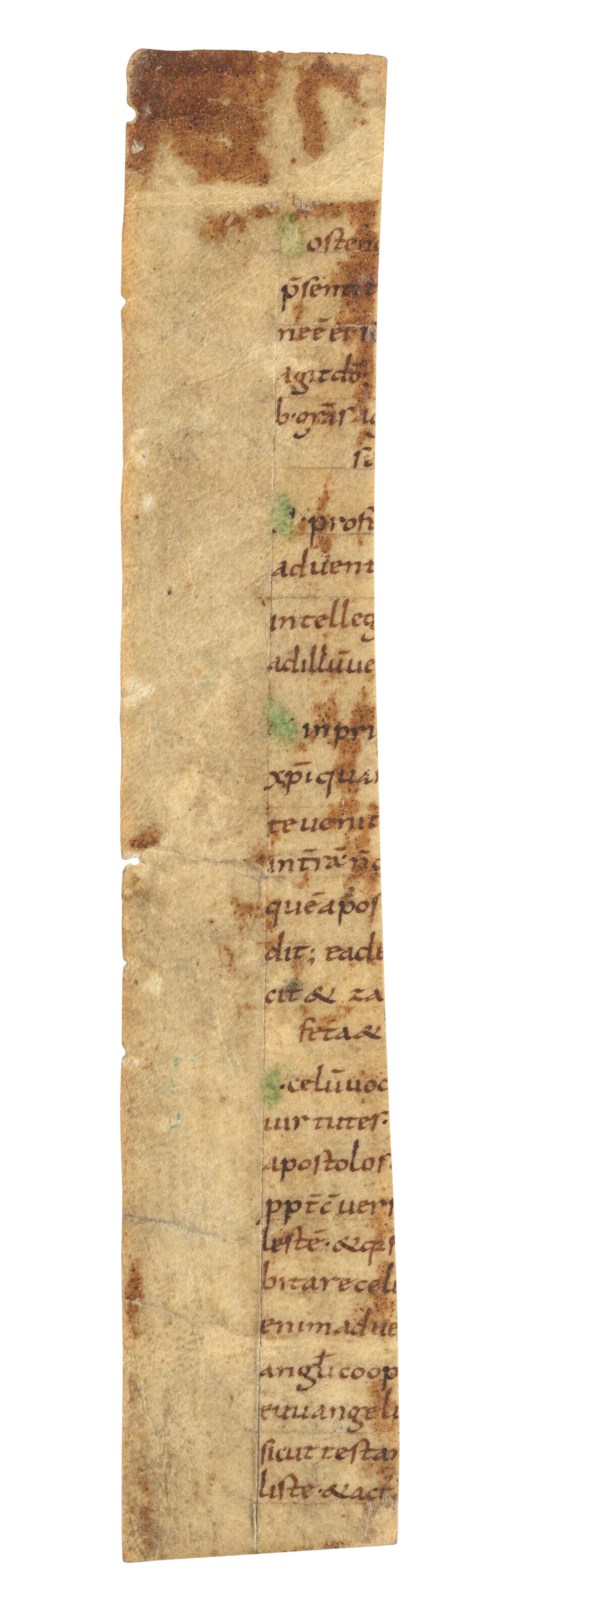 osten
p̄sentit
neēetiu
agit dō
b·gr̄as ag
sc
· profe
adueni
intelleg
adillū ue
inpri
xp̄i quan
te uenit
int̄ra· n̄o
quē apos
dit; eade
cit & za
feta &
· celū uoc
uirtutes·
apostolos
ppt̄c̄ uers
lestē· & qs
bitare celi
enim adue
angl̄i coop
euuangeli
sicut testan
liste· & act